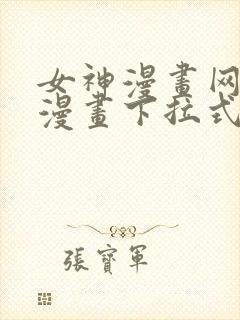 女神漫畫网
漫畫下拉式
張寶軍